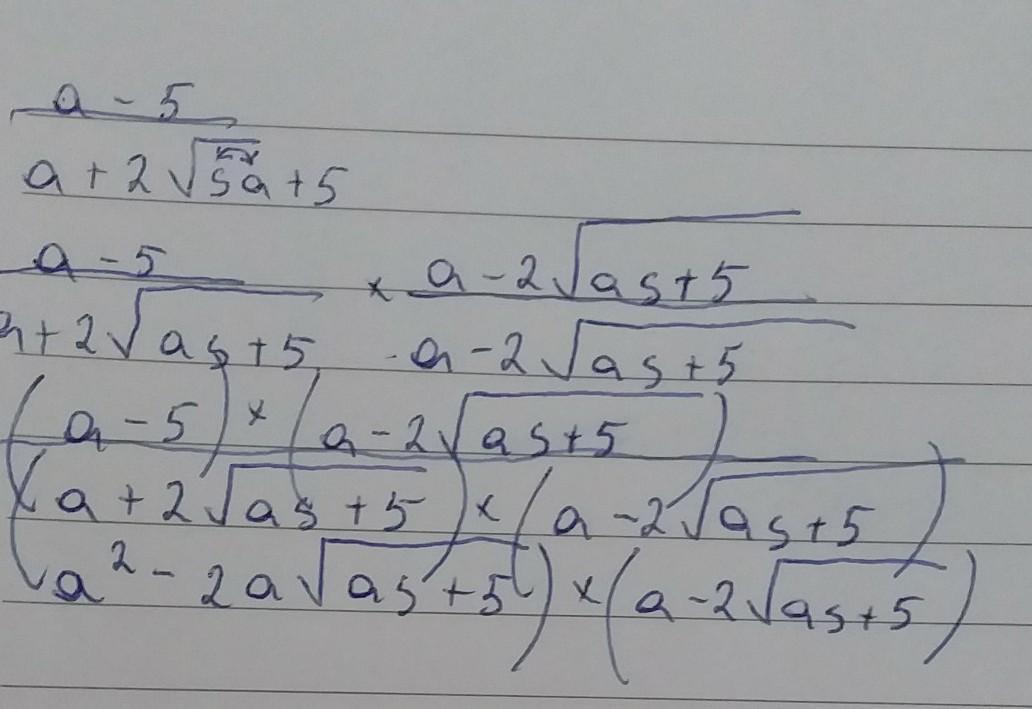 a - 5
a + 2√5a + 5
a - 5 × a - 2√a5+5
a + 2√a5+5 a - 2√a5+5
(a - 5) × (a - 2√a5+5)
(a + 2√a5+5) × (a - 2√a5+5)
(a² - 2a√a5+5) × (a - 2√a5+5)